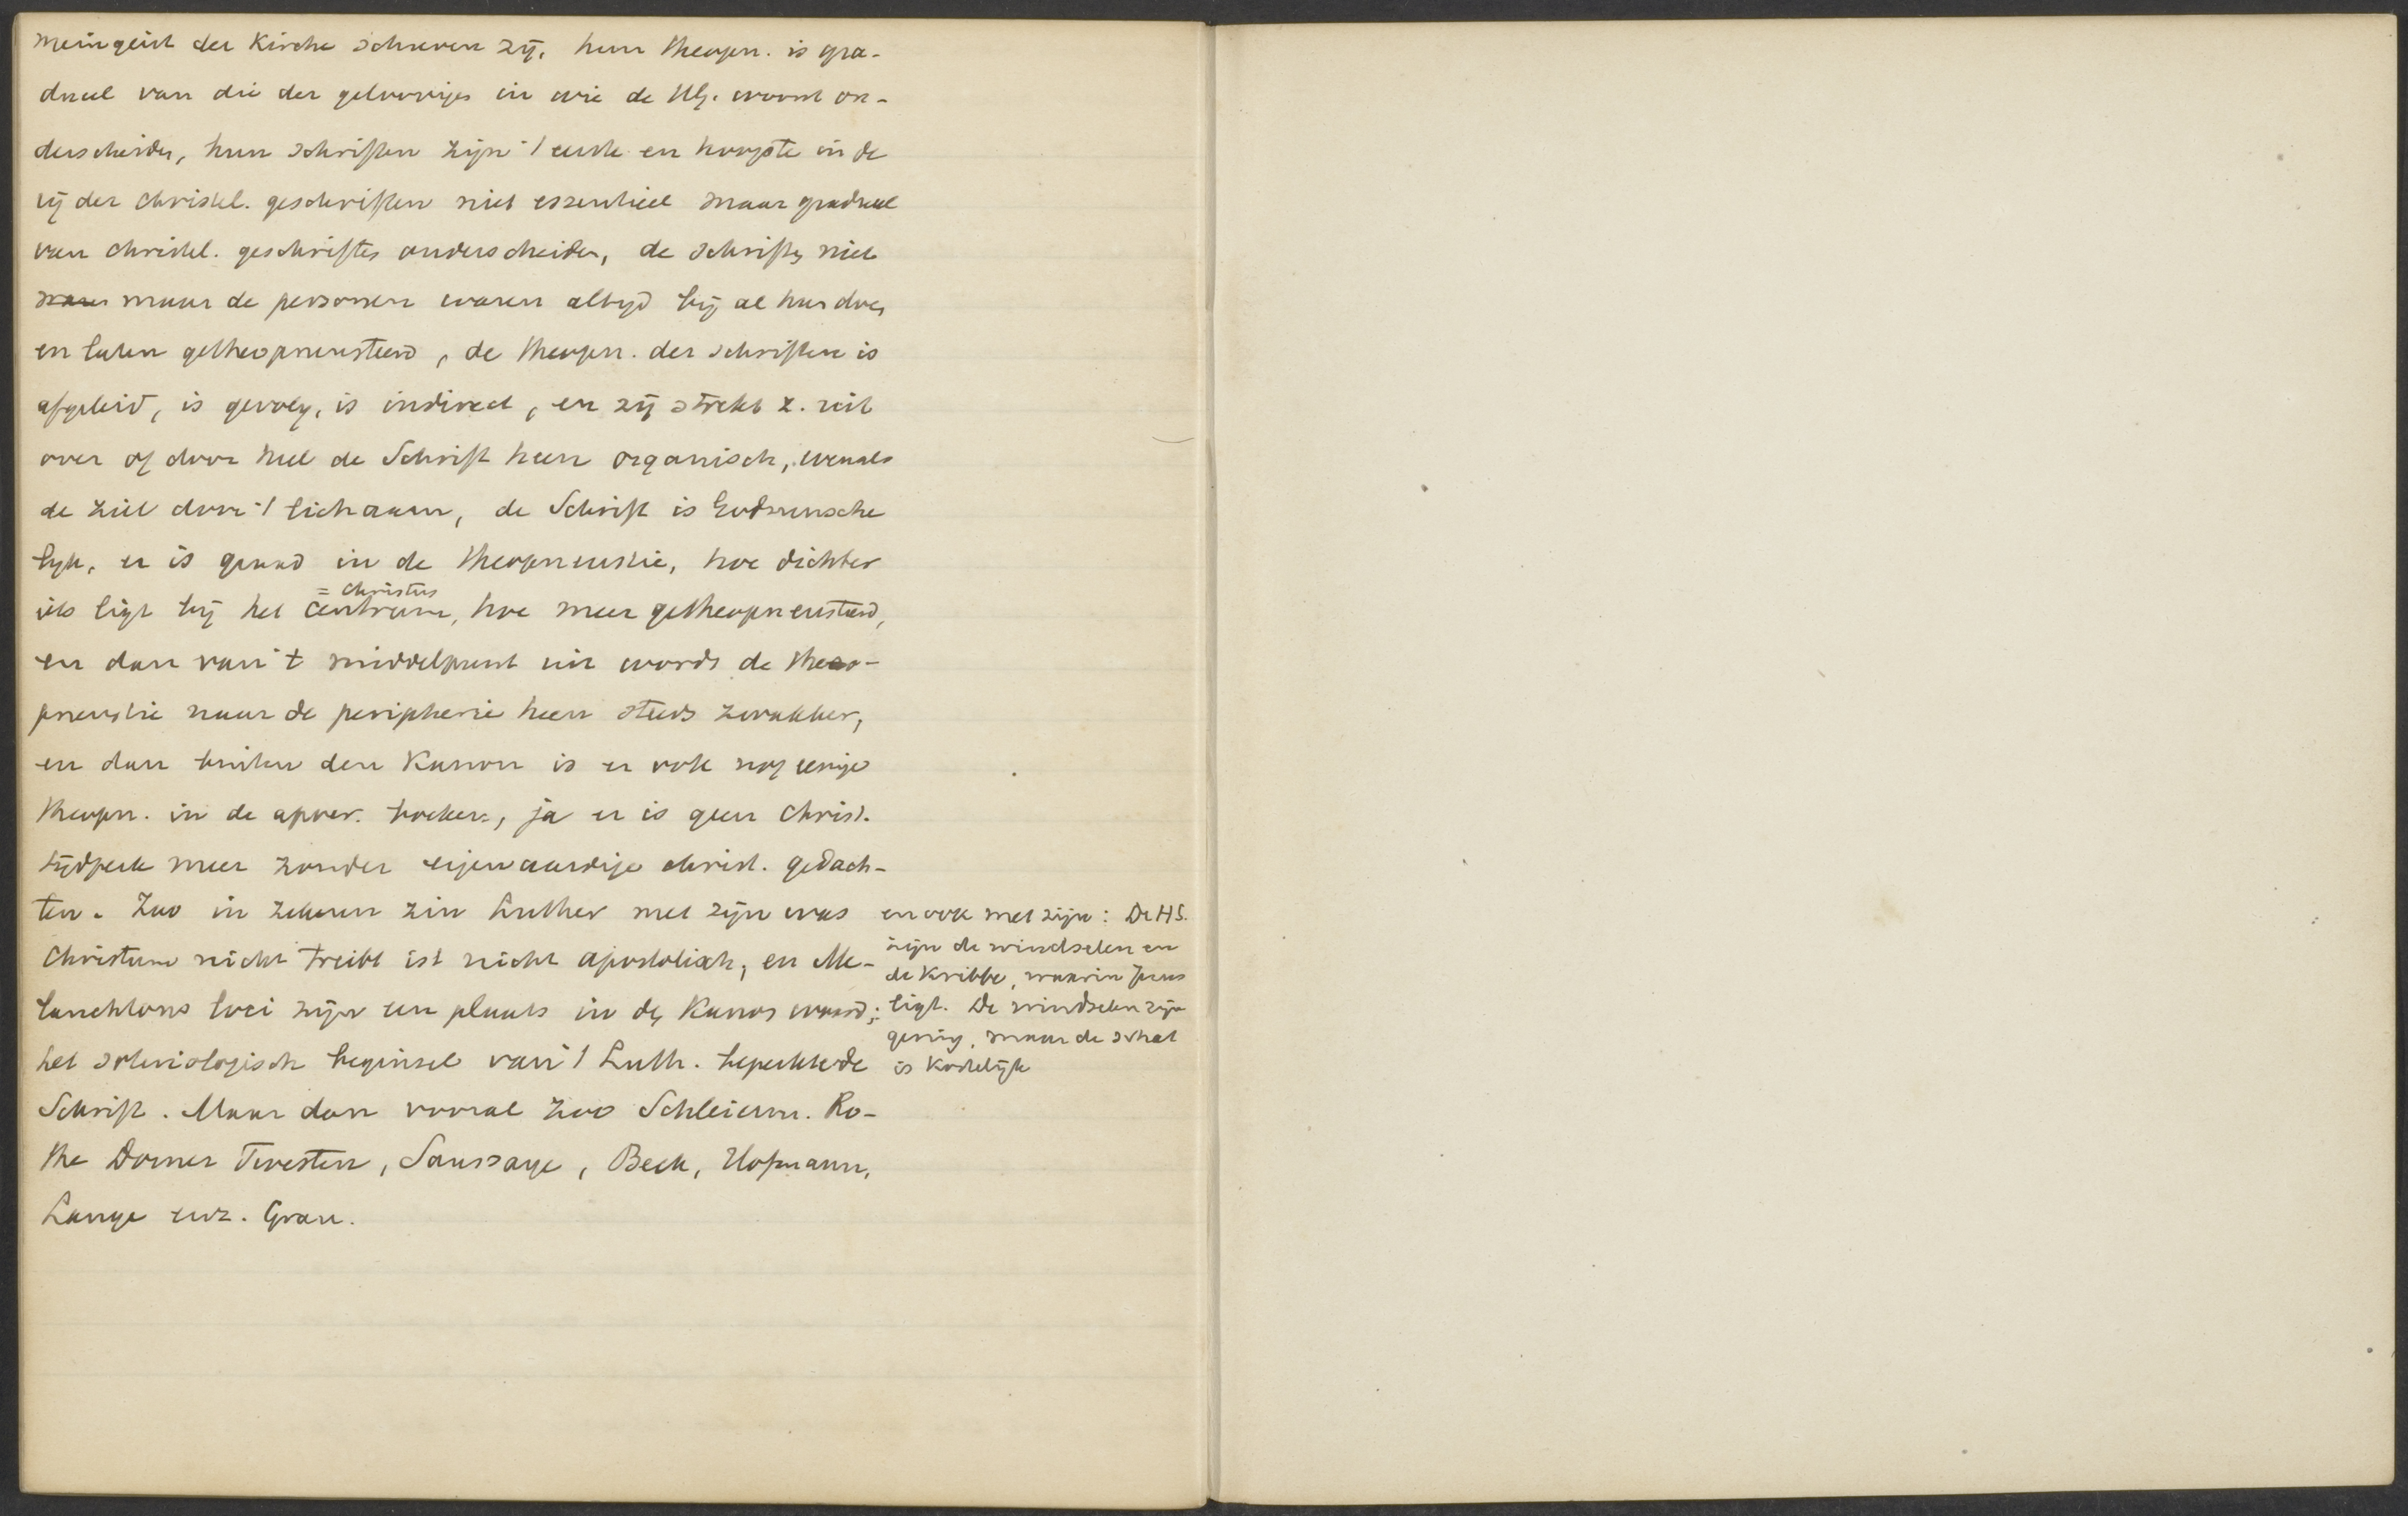 meingeist der Kirche schreven zij. hun theopn. is gra-
dueel van die der geloovigen in wie de HG. woont on-
derscheiden, hun schriften zijn 't eerste en hoogste in de
rij der christel. geschriften niet essentieel maar gradueel
van christel. geschriften onderscheiden, de schriften niet
maar de personen waren altijd bij al hun doen
en laten getheopneusteerd, de theopn. der schriften is
afgeleid, is gevolg, is indirect, en zij strekt z. uit
over of door heel de Schrift heen organisch, evenals
de ziel door 't lichaam, de Schrift is Godmensche
lijk, er is graad in de theopneustie, hoe dichter
= Christus
iets ligt bij het centrum, hoe meer getheopneusteerd,
en dan van 't middelpunt uit wordt de theo-
pneustie naar de peripherie heen steeds zwakker,
en dan buiten den Kanon is er ook nog eenige
theopn. in de apocr. boeken, ja er is geen Christ.
tijdperk meer zonder eigenaardige christ. gedach-
ten. Zoo in zekeren zin Luther met zijn was
Christum nicht treibt ist nicht apostolisch, en Me-
lanchtons loci zijn een plaats in den Kanon waard;
het soteriologisch beginsel van 't Luth. beperkte de
Schrift. Maar dan vooral zoo Schleierm. Ro-
the Dorner Twesten, Saussaye, Beck, Hofmann,
Lange enz. Grau.
en ook met zijn: De HS.
zijn de windselen en
de Kribbe, waarin Jezus
ligt. De windselen zijn
gering, maar de schat
is kostelijk